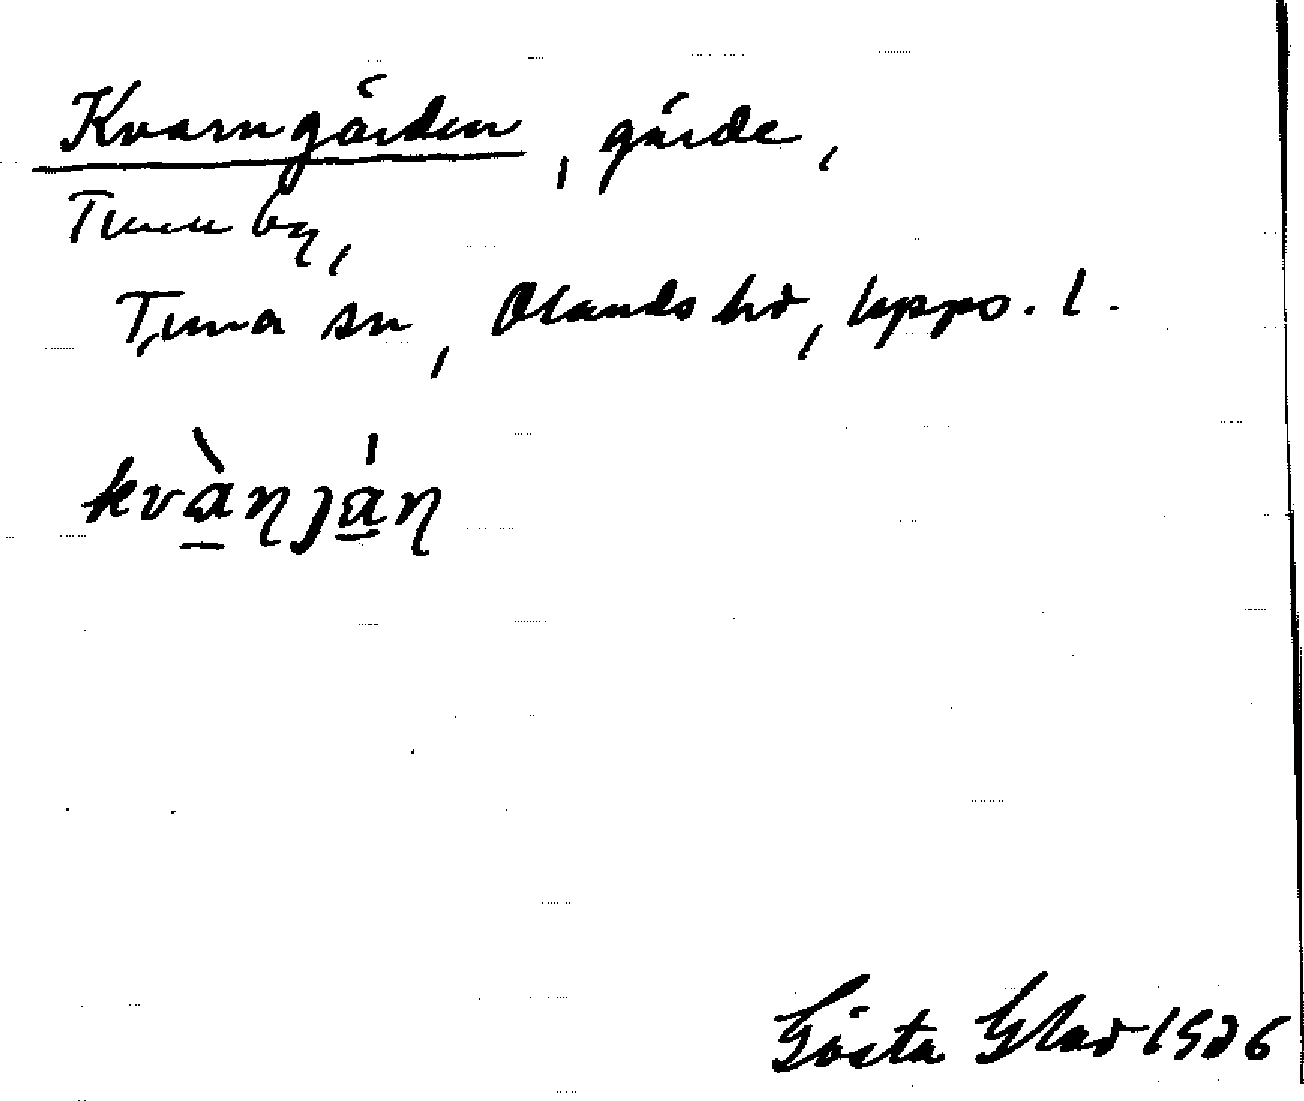 Kvarngärden, gärde,
Tuna by,
Tuna sn, Olands hd, Upps. l.
kvànjàn
Gösta Glad 1926